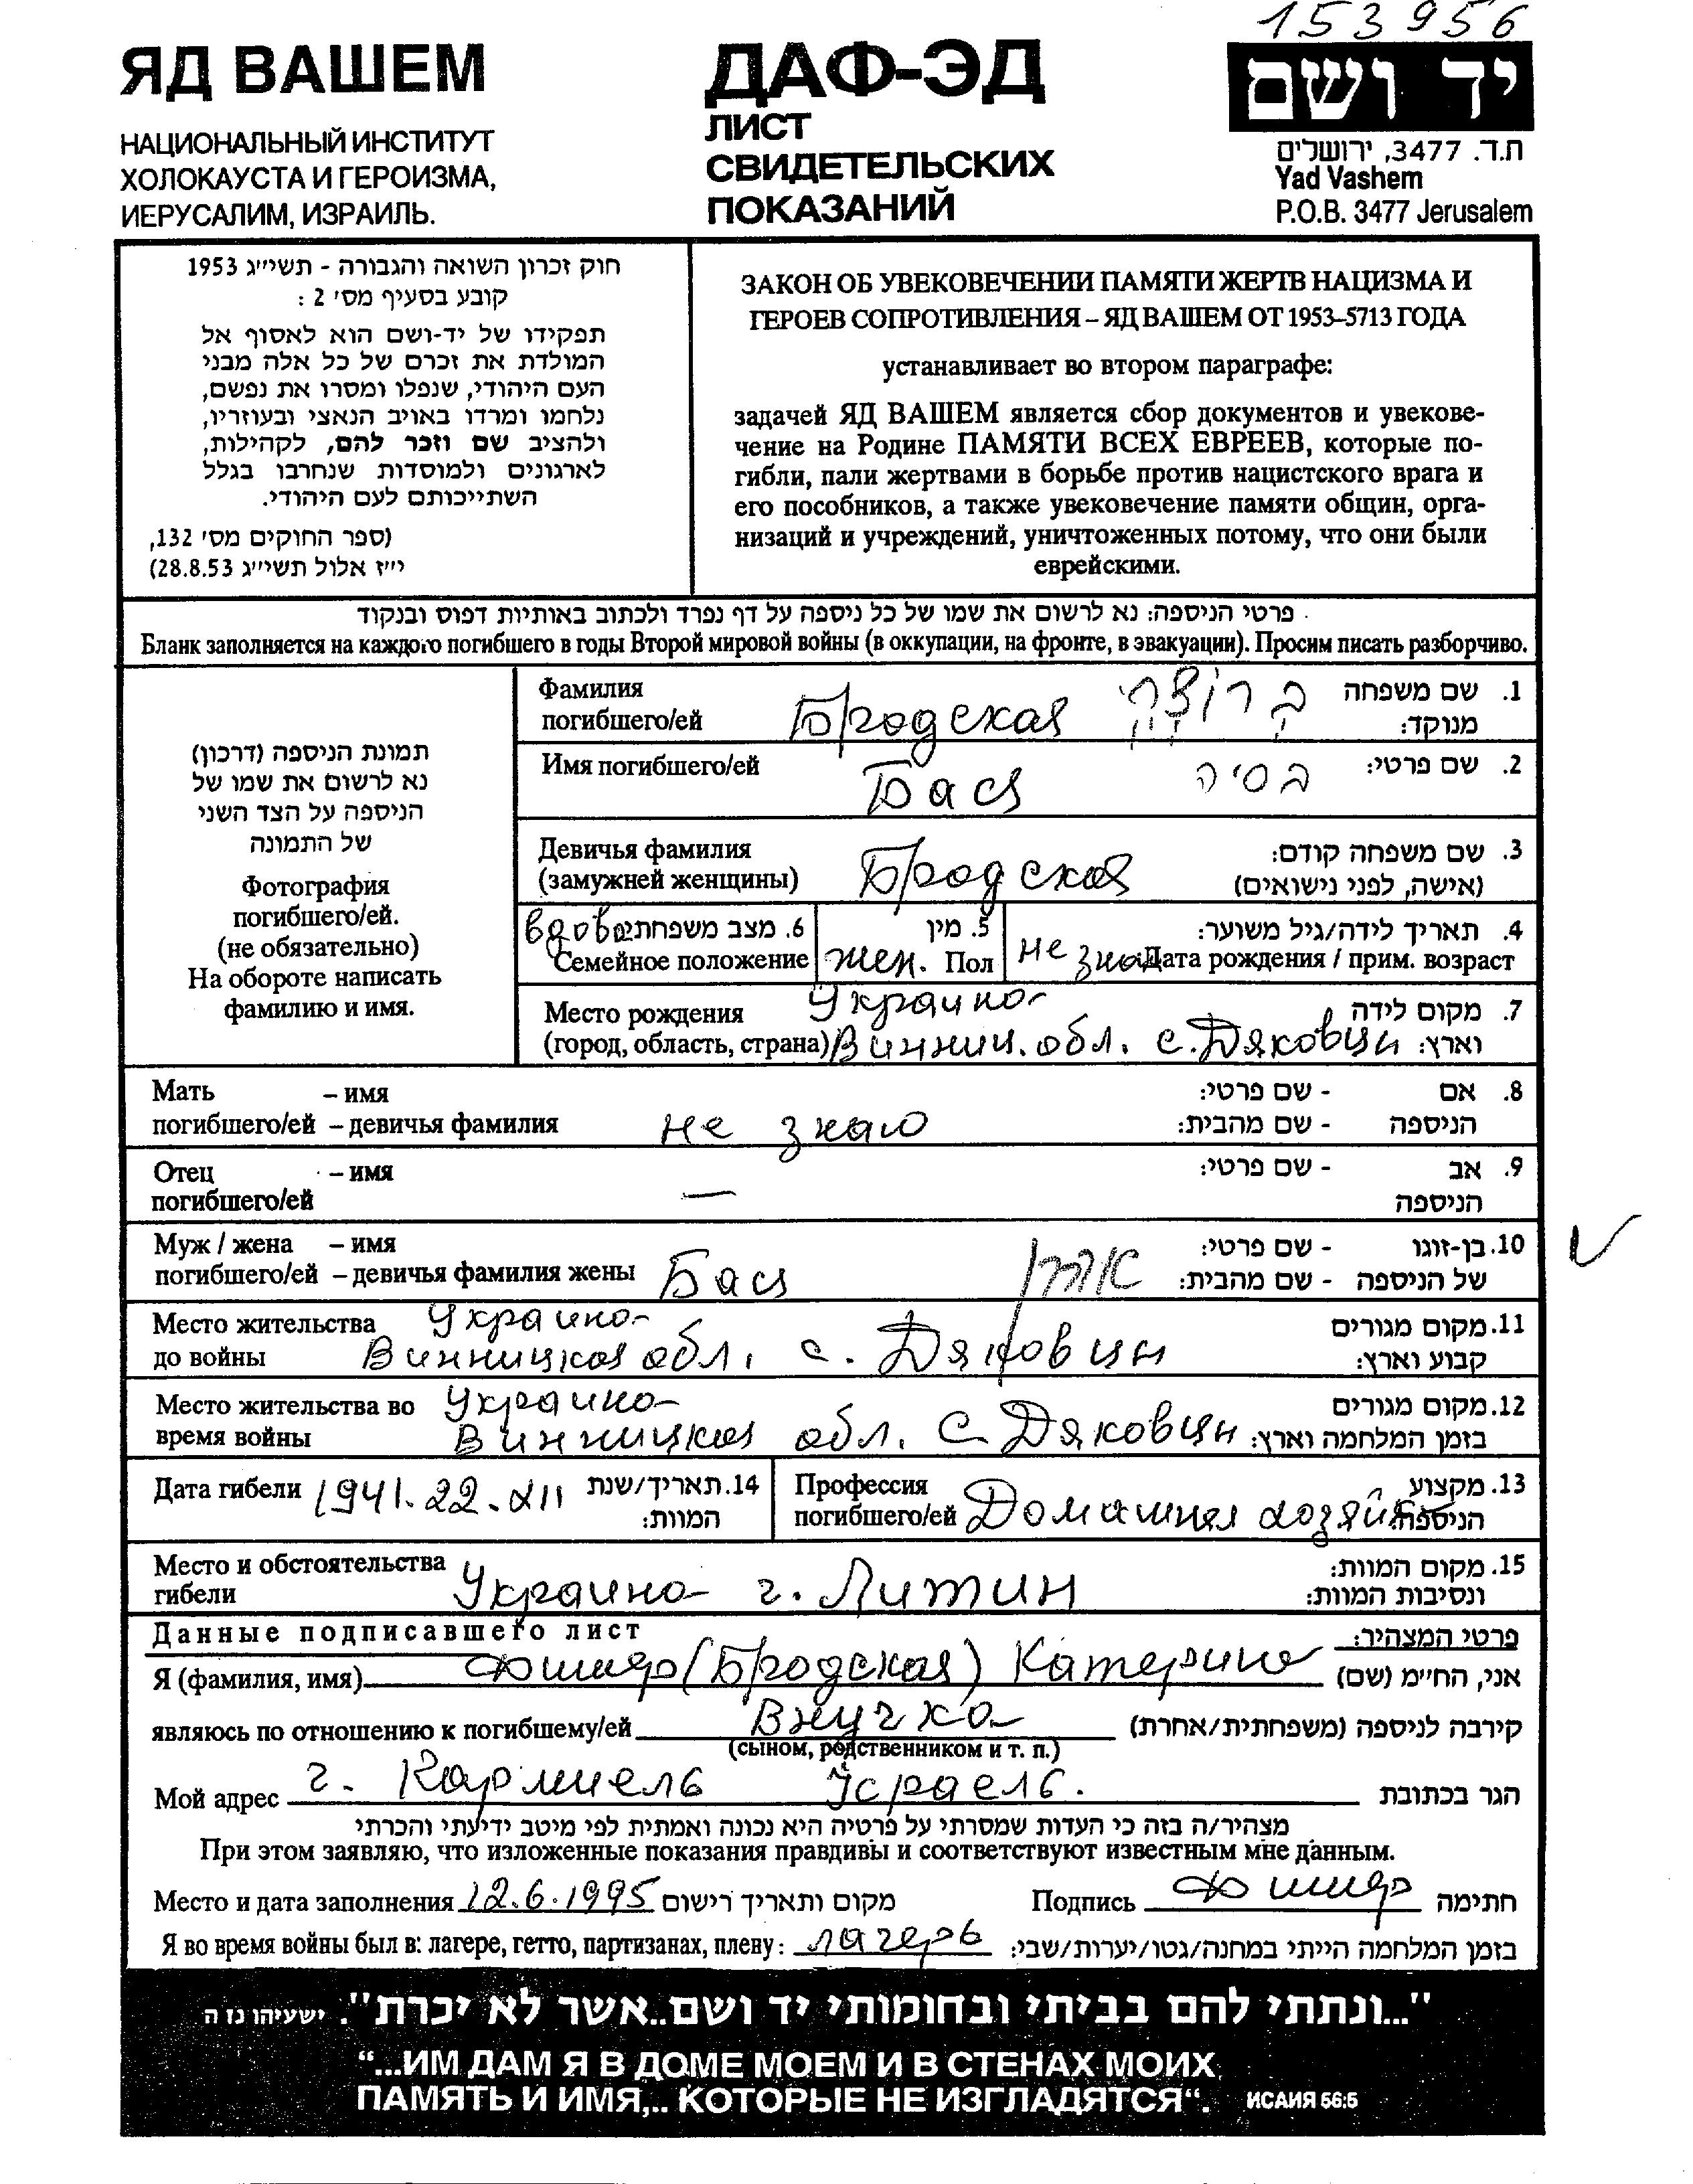 153956
ЯД ВАШЕМ
НАЦИОНАЛЬНЫЙ ИНСТИТУТ
ХОЛОКАУСТА И ГЕРОИЗМА,
ИЕРУСАЛИМ, ИЗРАИЛЬ.
ДАФ-ЭД
ЛИСТ
СВИДЕТЕЛЬСКИХ
ПОКАЗАНИЙ
יד ושם
ת.ד. 3477, ירושלים
Yad Vashem
P.O.B. 3477 Jerusalem
חוק זכרון השואה והגבורה - תשי״ג 1953
קובע בסעיף מס׳ 2 :
תפקידו של יד-ושם הוא לאסוף אל
המולדת את זכרם של כל אלה מבני
העם היהודי, שנפלו ומסרו את נפשם,
נלחמו ומרדו באויב הנאצי ובעוזריו,
ולהציב שם וזכר להם, לקהילות,
לארגונים ולמוסדות שנחרבו בגלל
השתייכותם לעם היהודי.
(ספר החוקים מס׳ 132,
י״ז אלול תשי״ג 28.8.53)
ЗАКОН ОБ УВЕКОВЕЧЕНИИ ПАМЯТИ ЖЕРТВ НАЦИЗМА И
ГЕРОЕВ СОПРОТИВЛЕНИЯ – ЯД ВАШЕМ ОТ 1953–5713 ГОДА
устанавливает во втором параграфе:
задачей ЯД ВАШЕМ является сбор документов и увекове-
чение на Родине ПАМЯТИ ВСЕХ ЕВРЕЕВ, которые по-
гибли, пали жертвами в борьбе против нацистского врага и
его пособников, а также увековечение памяти общин, орга-
низаций и учреждений, уничтоженных потому, что они были
еврейскими.
פרטי הניספה: נא לרשום את שמו של כל ניספה על דף נפרד ולכתוב באותיות דפוס ובנקוד
Бланк заполняется на каждого погибшего в годы Второй мировой войны (в оккупации, на фронте, в эвакуации). Просим писать разборчиво.
תמונת הניספה (דרכון)
נא לרשום את שמו של
הניספה על הצד השני
של התמונה
Фотография
погибшего/ей.
(не обязательно)
На обороте написать
фамилию и имя.
Фамилия 1. שם משפחה
погибшего/ей Бродская מנוקד:
Имя погибшего/ей Бася בסיה 2. שם פרטי:
Девичья фамилия 3. שם משפחה קודם:
(замужней женщины) Бродская (אישה, לפני נישואים)
вдова 6. מצב משפחתי
Семейное положение
5. מין
жен. Пол
4. תאריך לידה/גיל משוער:
не знаю Дата рождения / прим. возраст
Место рождения Украина 7. מקום לידה
(город, область, страна) Винниц. обл. с. Дяковцы וארץ:
Мать – имя 8. אם - שם פרטי:
погибшего/ей – девичья фамилия не знаю הניספה - שם מהבית:
Отец – имя 9. אב - שם פרטי:
погибшего/ей — הניספה
Муж / жена – имя 10. בן-זוגו - שם פרטי:
погибшего/ей – девичья фамилия жены Бася של הניספה - שם מהבית:
Место жительства Украина 11. מקום מגורים
до войны Винницкая обл. с. Дяковцы קבוע וארץ:
Место жительства во Украина 12. מקום מגורים
время войны Винницкая обл. с. Дяковцы בזמן המלחמה וארץ:
Дата гибели 1941. 22. XII 14. תאריך/שנת
המוות:
Профессия 13. מקצוע
погибшего/ей Домашняя хозяйка הניספה:
Место и обстоятельства 15. מקום המוות:
гибели Украина г. Литин ונסיבות המוות:
Данные подписавшего лист פרטי המצהיר:
Я (фамилия, имя) Фишер (Бродская) Катерина אני, החי״מ (שם)
являюсь по отношению к погибшему/ей Внучка קירבה לניספה (משפחתית/אחרת)
(сыном, родственником и т. п.)
Мой адрес г. Кармиель Исраель. הגר בכתובת
מצהיר/ה בזה כי העדות שמסרתי על פרטיה היא נכונה ואמתית לפי מיטב ידיעתי והכרתי
При этом заявляю, что изложенные показания правдивы и соответствуют известным мне данным.
Место и дата заполнения 12.6.1995 מקום ותאריך רישום Подпись Фишер חתימה
Я во время войны был в: лагере, гетто, партизанах, плену: лагерь בזמן המלחמה הייתי במחנה/גטו/יערות/שבי:
"...ונתתי להם בביתי ובחומותי יד ושם..אשר לא יכרת". ישעיהו נו ה
“...ИМ ДАМ Я В ДОМЕ МОЕМ И В СТЕНАХ МОИХ
ПАМЯТЬ И ИМЯ,.. КОТОРЫЕ НЕ ИЗГЛАДЯТСЯ“. ИСАИЯ 56:5